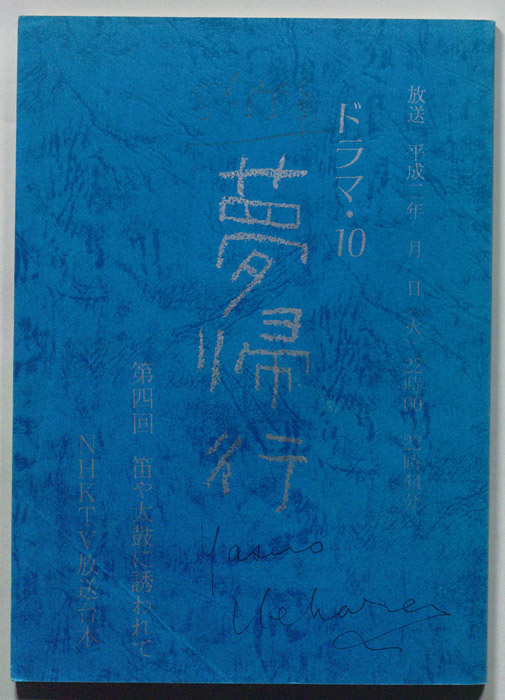 放送 平成二年 月 日(火)22時00-22時44分
ドラマ・10
夢帰行
第四回 笛や太鼓に誘われて
NHKTV放送台本
Yasuo
Uehara